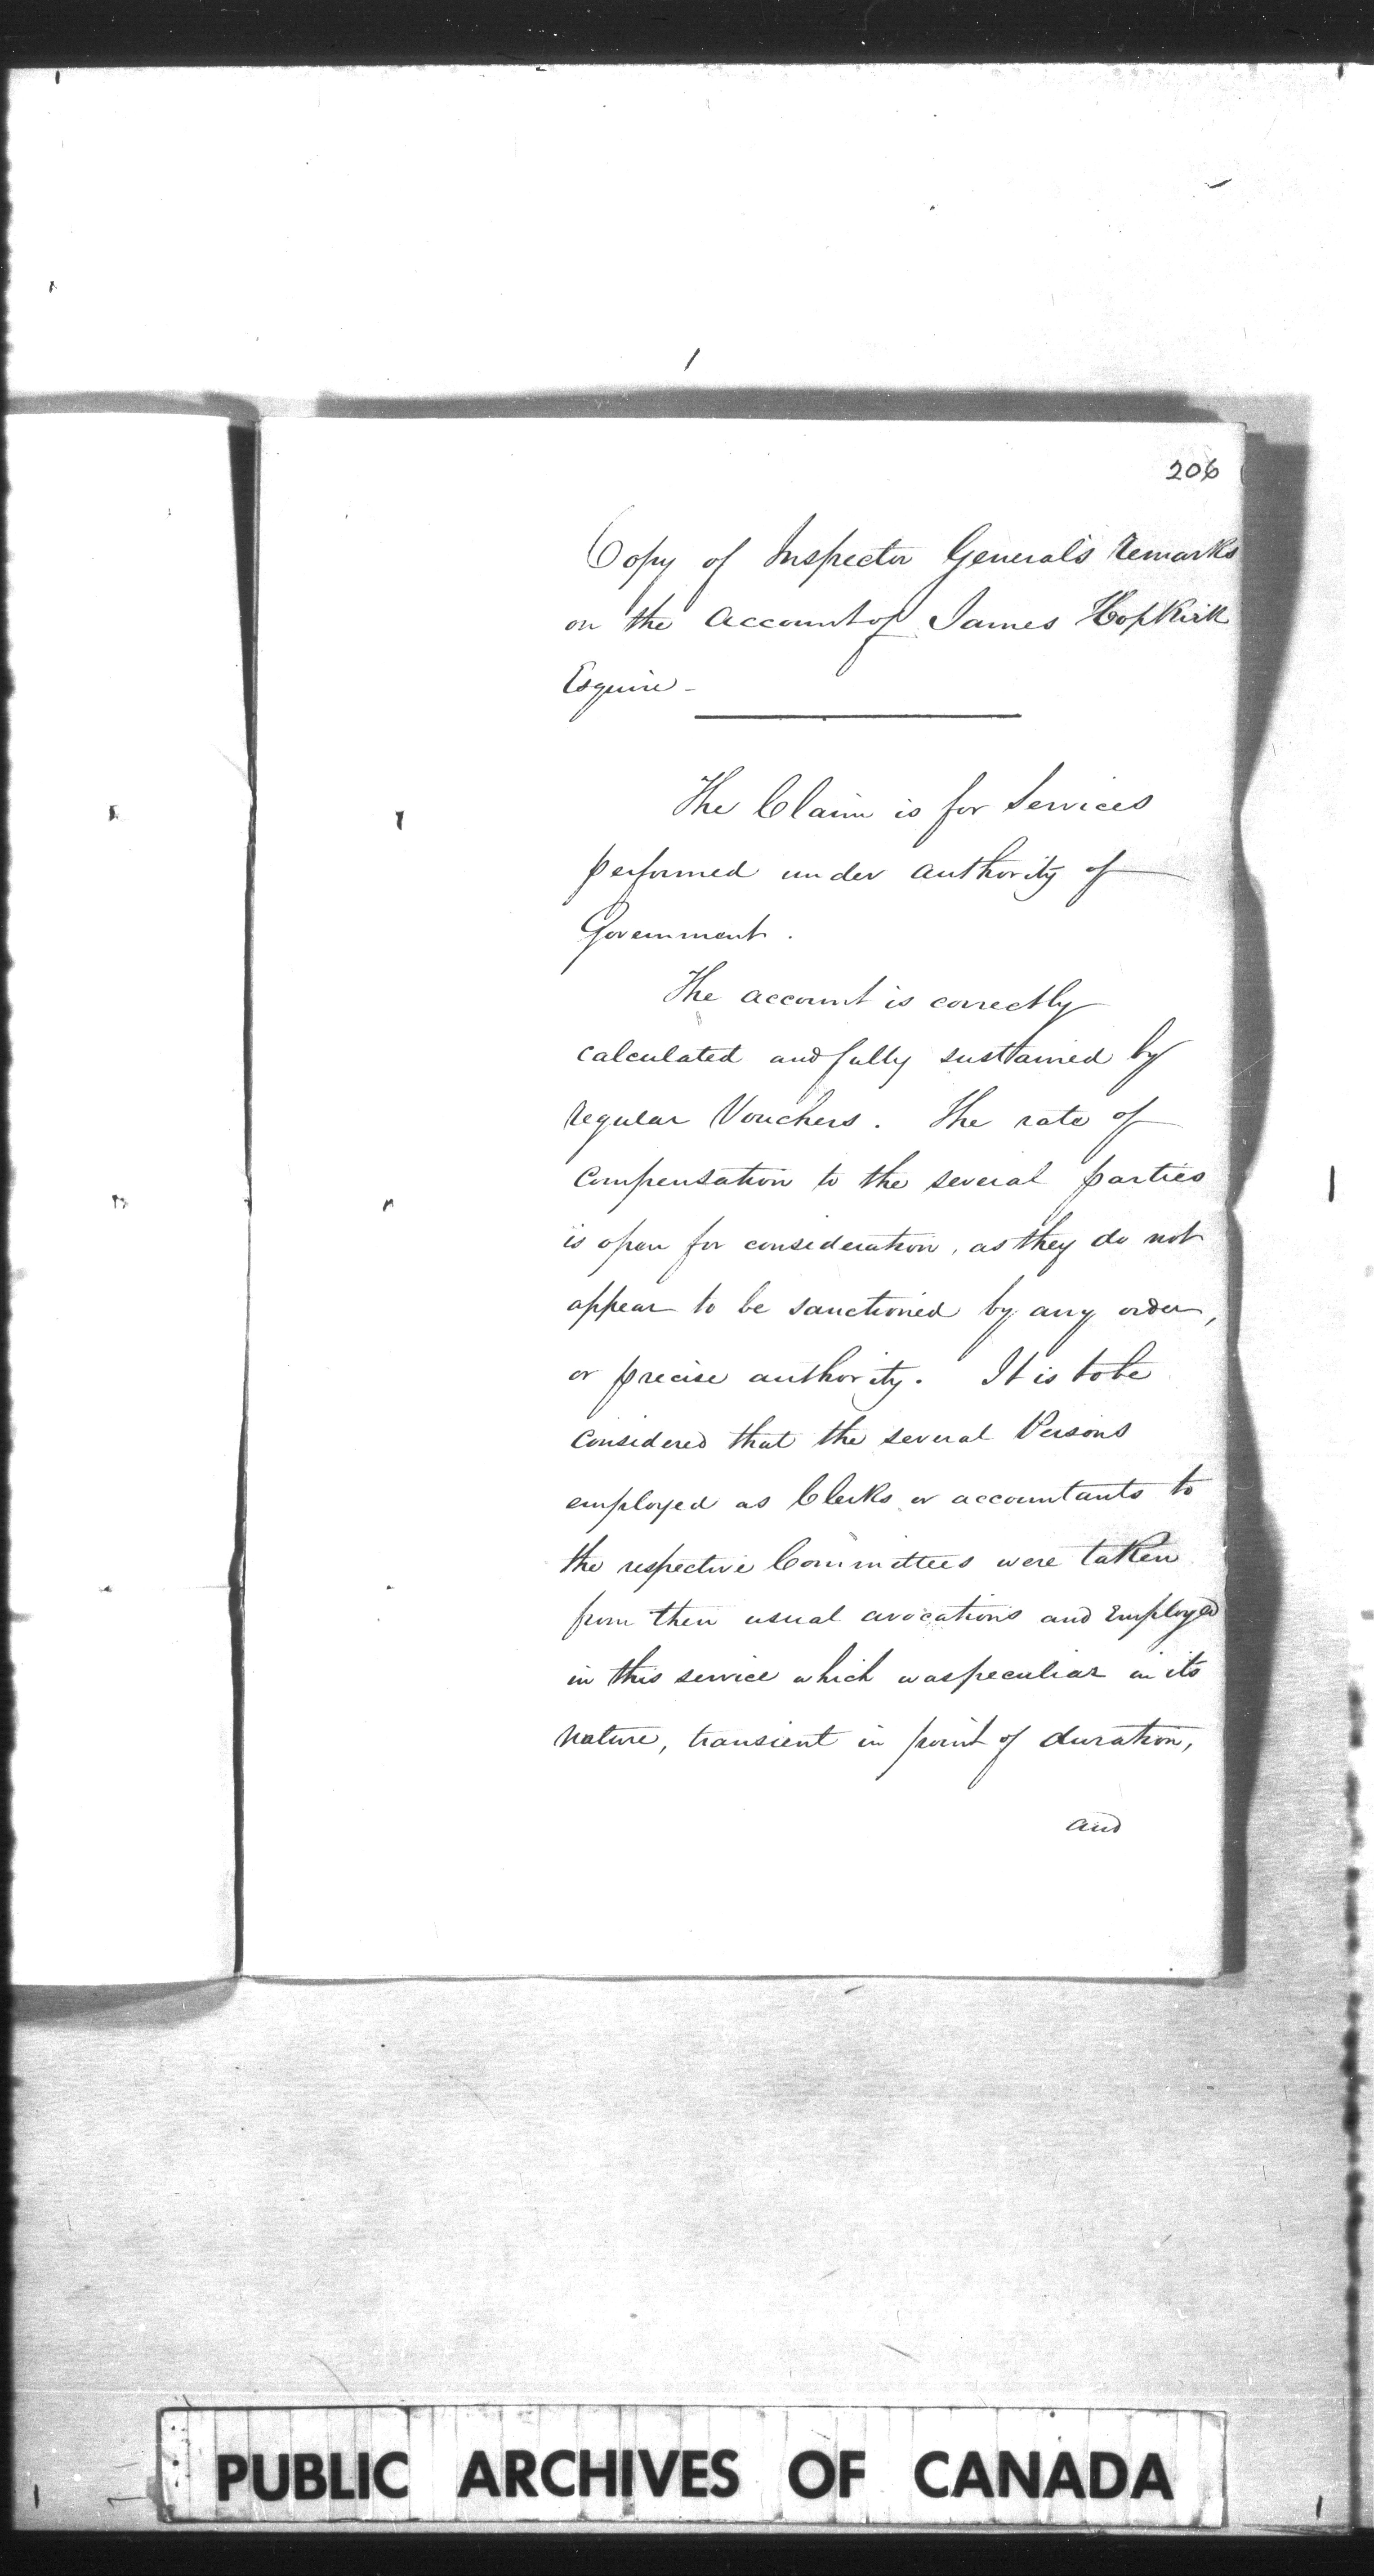 206
Copy of Inspector General's remarks
on the account of James HopKirk
Esquire -
The Claim is for Services
performed under authority of
Government.
The account is correctly
calculated and fully sustained by
regular Vouchers. The rate of
compensation to the several parties
is open for consideration, as they do not
appear to be sanctioned by any order,
or precise authority. It is to be
considered that the several Persons
employed as Clerks or accountants to
the respective Committees were taken
from their usual avocations and Employed
in this service which was peculiar in its
nature, transient in point of duration,
and
PUBLIC ARCHIVES OF CANADA